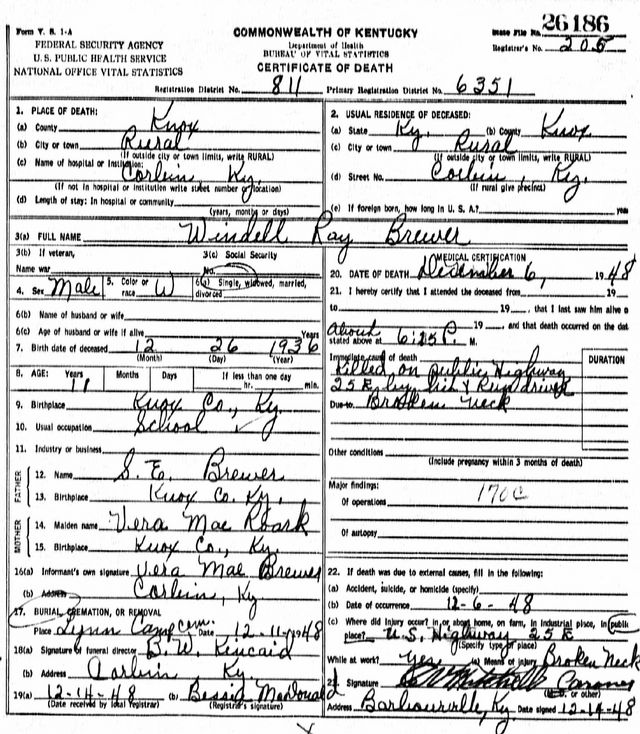 Form V. S. 1-A
FEDERAL SECURITY AGENCY
U. S. PUBLIC HEALTH SERVICE
NATIONAL OFFICE VITAL STATISTICS
COMMONWEALTH OF KENTUCKY
Department of Health
BUREAU OF VITAL STATISTICS
CERTIFICATE OF DEATH
State File No. 26186
Registrar's No. 205
Registration District No. 811 Primary Registration District No. 6351
1. PLACE OF DEATH:
(a) County Knox
(b) City or town Rural
(If outside city or town limits, write RURAL)
(c) Name of hospital or institution:
Corbin Ky.
(If not in hospital or institution write street number or location)
(d) Length of stay: In hospital or community
(years, months or days)
2. USUAL RESIDENCE OF DECEASED:
(a) State Ky. (b) County Knox
(c) City or town Rural
(If outside city or town limits, write RURAL)
(d) Street No. Corbin, Ky.
(If rural give precinct)
(e) If foreign born, how long in U. S. A.? years
3(a) FULL NAME Windell Ray Brewer
3(b) If veteran, Name war
3(c) Social Security No.
4. Sex Male 5. Color or race W 6(a) Single, widowed, married, divorced
6(b) Name of husband or wife
6(c) Age of husband or wife if alive Years
7. Birth date of deceased 12 26 1936
(Month) (Day) (Year)
8. AGE: Years Months Days If less than one day
11 hr. min.
9. Birthplace Knox Co., Ky.
10. Usual occupation School
11. Industry or business
FATHER
12. Name S. E. Brewer
13. Birthplace Knox Co. Ky.
MOTHER
14. Maiden name Vera Mae Roark
15. Birthplace Knox Co., Ky.
16(a) Informant's own signature Vera Mae Brewer
(b) Address Corbin, Ky
17. BURIAL, CREMATION, OR REMOVAL
Place Lynn Camp Cem. Date 12-11-1948
18(a) Signature of funeral director B. W. Kincaid
(b) Address Corbin Ky.
19(a) 12-14-48 (b) Bessie McDonald
(Date received by local registrar) (Registrar's signature)
MEDICAL CERTIFICATION
20. DATE OF DEATH December 6, 1948
21. I hereby certify that I attended the deceased from 19
to 19, that I last saw him alive o
About 19 and that death occurred on the date
stated above at 6:25 P. M.
Immediate cause of death
DURATION
Killed on public Highway
25 E by hit & Run driver
Due to Broken Neck
Other conditions
(Include pregnancy within 3 months of death)
Major findings:
Of operations 170C
Of autopsy
22. If death was due to external causes, fill in the following:
(a) Accident, suicide, or homicide (specify)
(b) Date of occurrence 12-6-48
(c) Where did injury occur? in or about home, on farm, in industrial place, in public
place? U.S. Highway 25 E
(Specify type of place)
While at work? Yes (e) Means of injury Broken Neck
23. Signature Mitchell Coroner
(M. D. or other)
Address Barbourville, Ky. Date signed 12-14-48